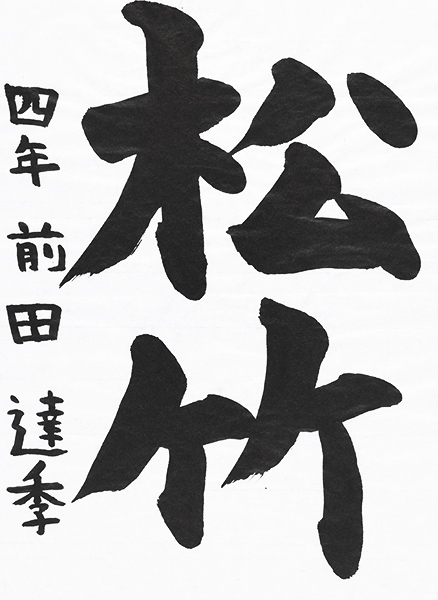 松竹
四年 前田 達季